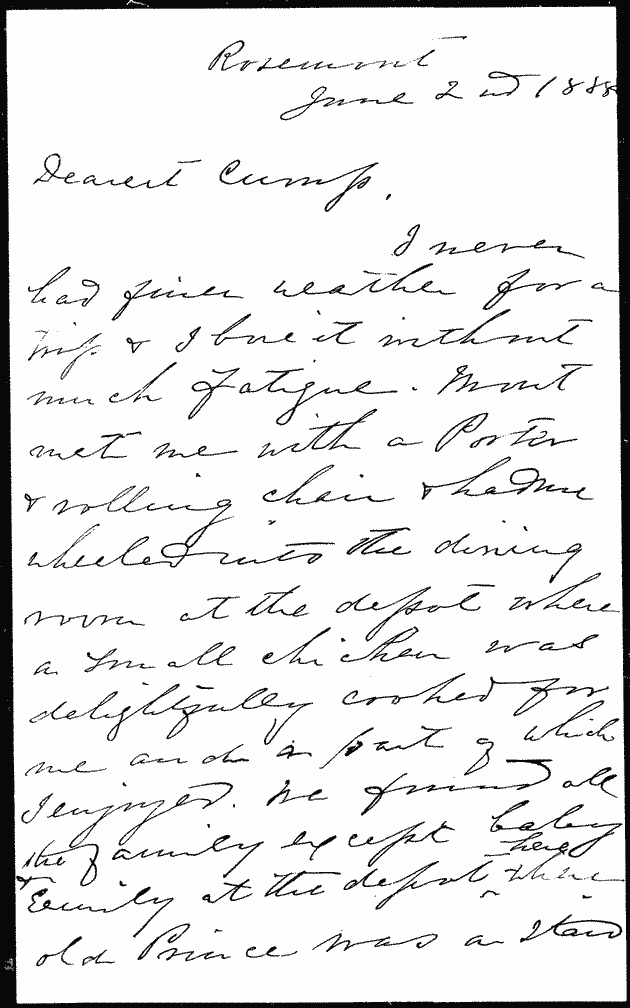 Rosemont
June 2nd 1888
Dearest Cump,
I never
had finer weather for a
trip & I bore it without
much fatigue. Mont
met me with a Porter
& rolling chair & had me
wheeled into the dining
room at the depot where
a small chicken was
delightfully cooked for
me and a part of which
I enjoyed. We found all
the family except baby
& Emily at the depot here where
old Prince was on